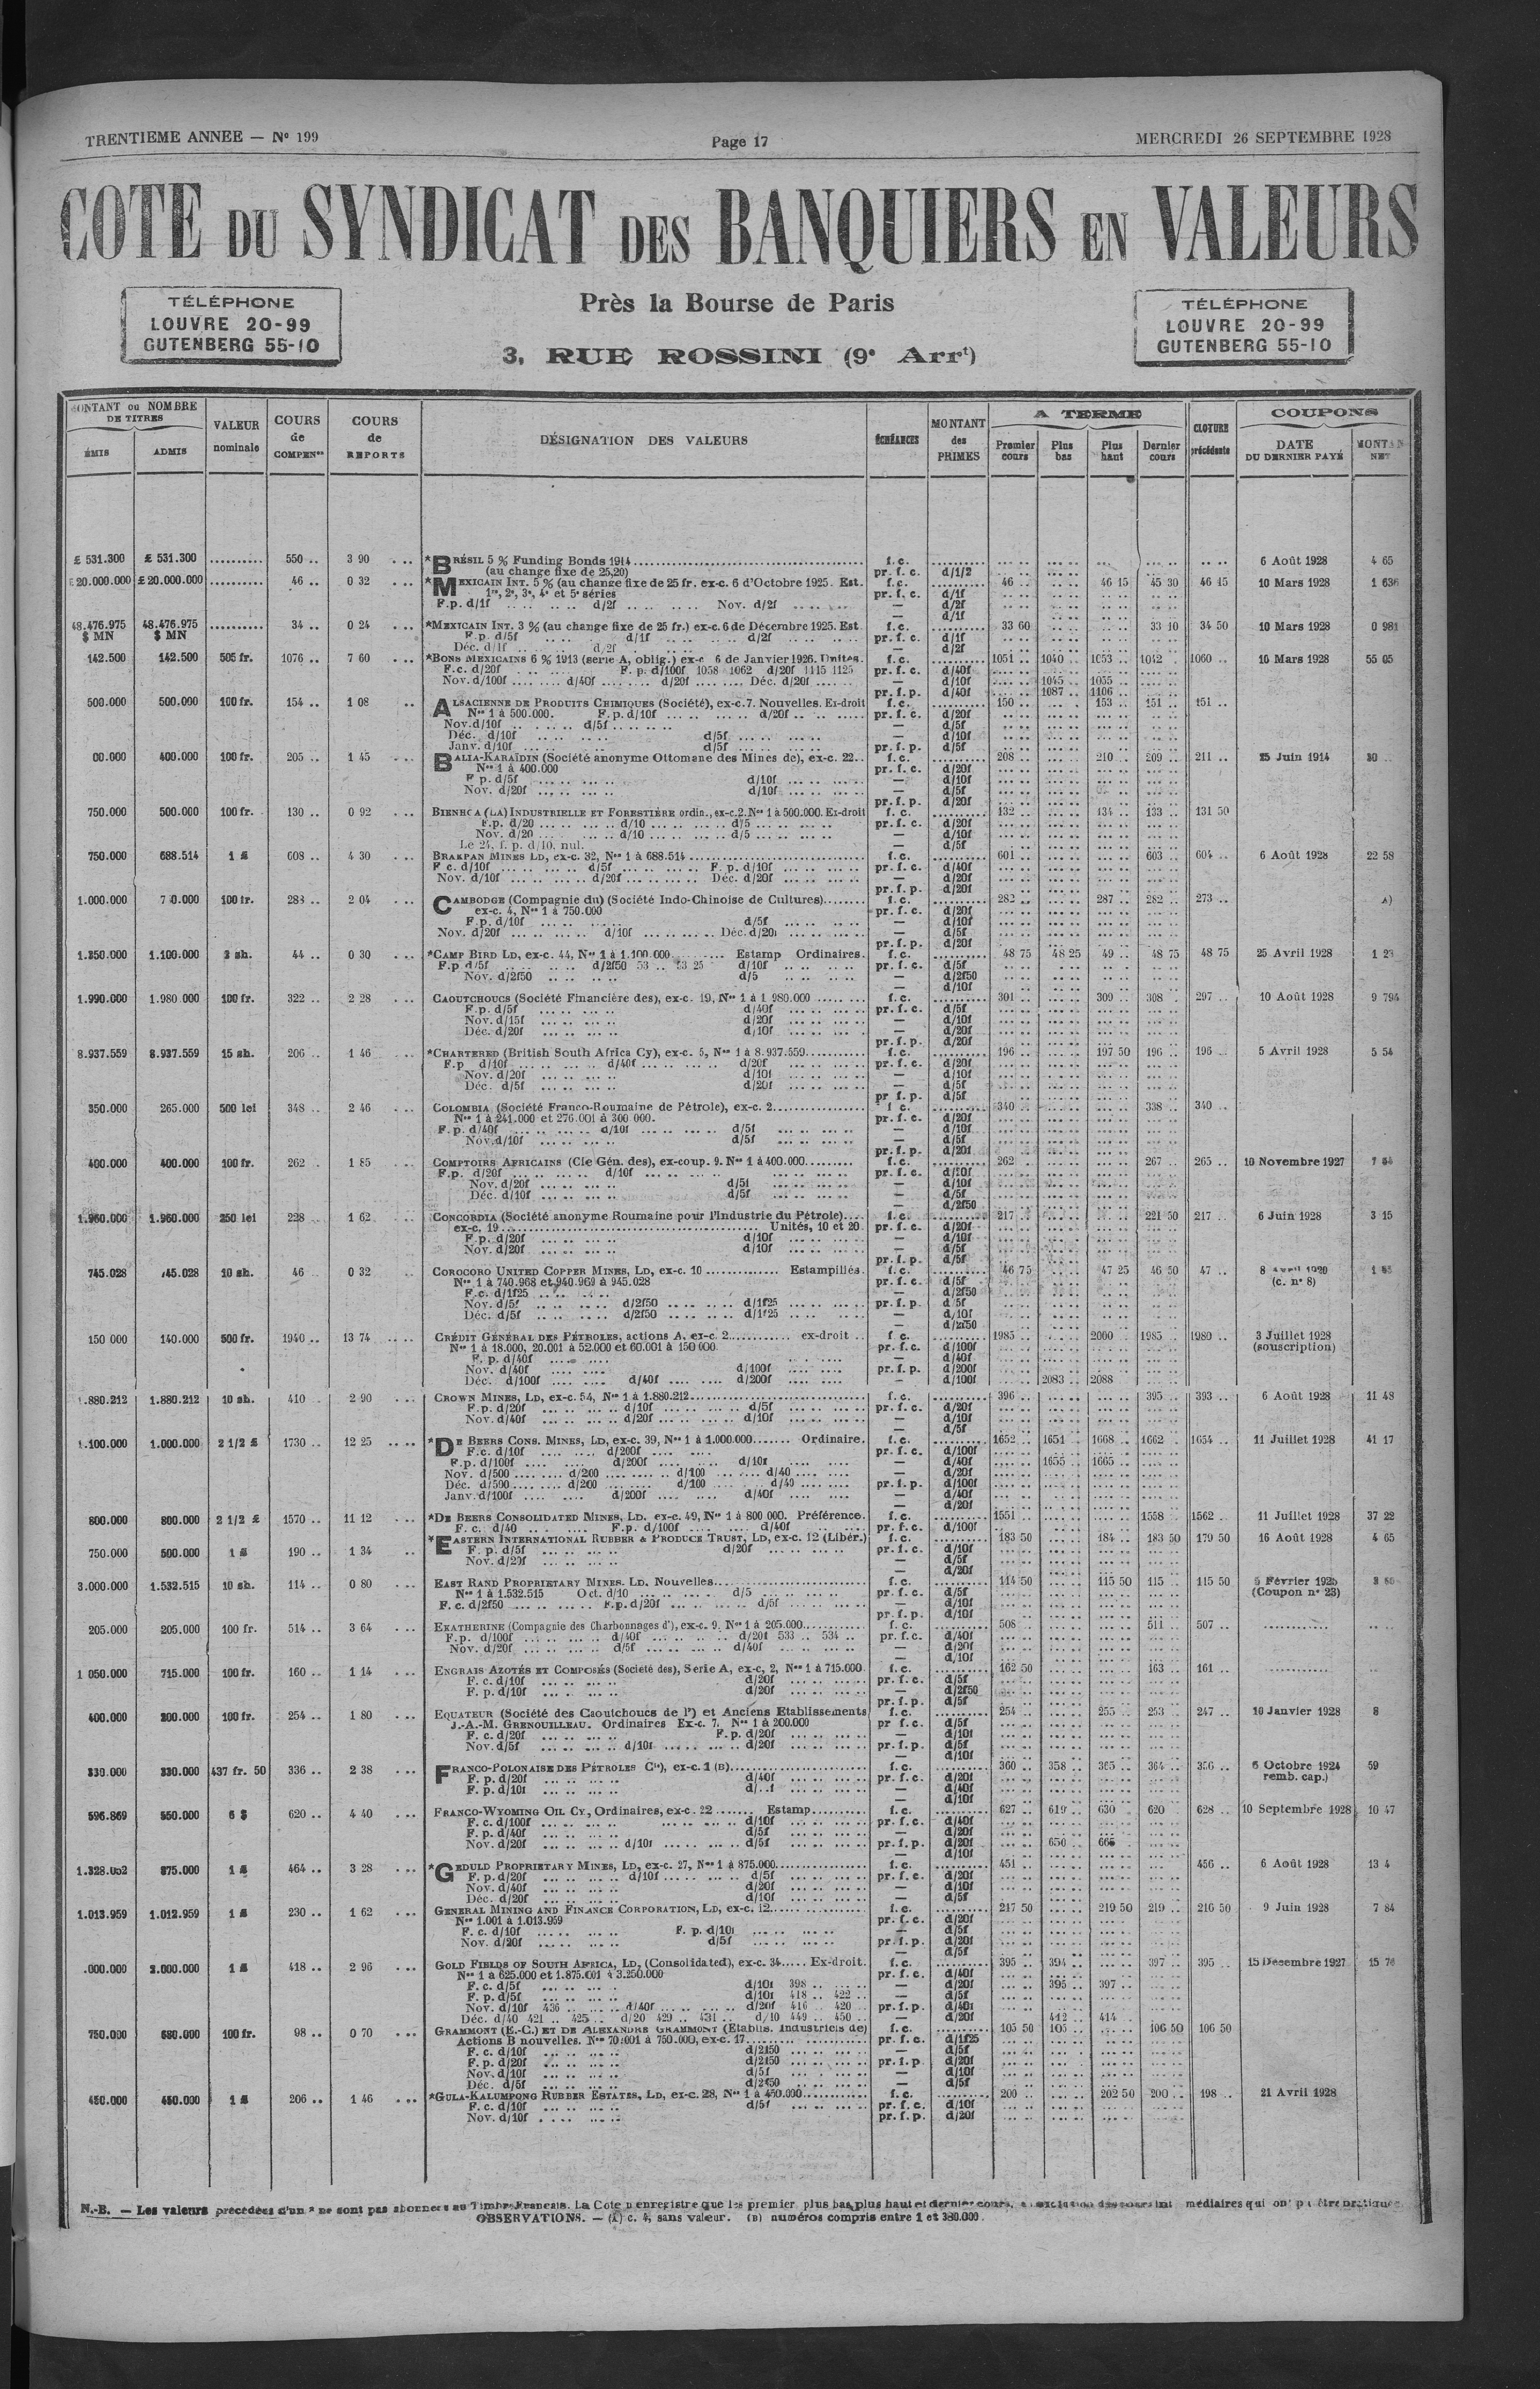 TRENTIEME ANNEE — N° 199
Page 17
MERCREDI 26 SEPTEMBRE 1928
COTE DU SYNDICAT DES BANQUIERS EN VALEURS
TÉLÉPHONE
LOUVRE 20-99
GUTENBERG 55-10
Près la Bourse de Paris
3, RUE ROSSINI (9e Arrt)
TÉLÉPHONE
LOUVRE 20-99
GUTENBERG 55-10
MONTANT ou NOMBRE DE TITRES
ÉMIS ADMIS
VALEUR nominale
COURS de COMPENon
COURS de REPORTS
DÉSIGNATION DES VALEURS
ÉCHÉANCES
MONTANT des PRIMES
A TERME
Premier cours Plus bas Plus haut Dernier cours
CLOTURE précédente
COUPONS
DATE DU DERNIER PAYÉ
NET
£ 531.300 £ 531.300 .......... 550 .. 3 90 *BRÉSIL 5 % Funding Bonds 1914 f. c. 6 Août 1928 4 65
(au change fixe de 25,20) pr. f. c. d/1/2
20.000.000 £ 20.000.000 .......... 46 .. 0 32 *MEXICAIN INT. 5 % (au change fixe de 25 fr. ex-c. 6 d'Octobre 1925. Est. f.c. 46 .. 46 15 45 30 46 15 10 Mars 1928 1 636
1re, 2e, 3e, 4e et 5e séries pr. f. c. d/1f
F.p. d/1f d/2f Nov. d/2f — d/2f
— d/1f
48.476.975 48.476.975 .......... 34 .. 0 24 *MEXICAIN INT. 3 % (au change fixe de 25 fr.) ex-c. 6 de Décembre 1925. Est. f. c. 33 60 33 10 34 50 10 Mars 1928 0 981
$ MN $ MN F.p. d/5f d/1f d/2f pr. f. c. d/1f
Déc. d/1f d/2f — d/2f
142.500 142.500 505 fr. 1076 .. 7 60 *BONS MEXICAINS 6 % 1913 (serie A, oblig.) ex-c 6 de Janvier 1926. Unités. f. c. 1051 .. 1040 .. 1053 .. 1042 1060 .. 16 Mars 1928 55 05
F.c. d/20f F. p. d/100f 1058 1062 d/20f 1115 1125 pr. f. c. d/40f
Nov. d/100f d/40f d/20f Déc. d/20f — d/10f 1045 .. 1055 ..
pr. f. p. d/40f 1087 .. 1106 ..
500.000 500.000 100 fr. 154 .. 1 08 ALSACIENNE DE PRODUITS CHIMIQUES (Société), ex-c.7. Nouvelles. Ex-droit f. c. 150 .. 153 .. 151 .. 151 ..
Nos 1 à 500.000. F.p. d/10f d/20f pr. f. c. d/20f
Nov.d/10f d/5f — d/5f
Déc. d/10f d/5f — d/10f
Janv. d/10f d/5f pr. f. p. d/5f
00.000 400.000 100 fr. 205 .. 1 45 BALIA-KARAÏDIN (Société anonyme Ottomane des Mines de), ex-c. 22.. f. c. 208 .. 210 .. 209 .. 211 .. 25 Juin 1914
Nos 1 à 400.000 pr. f. c. d/20f
F p. d/5f d/10f — d/10f
Nov. d/20f d/10f — d/5f
pr. f. p. d/20f
750.000 500.000 100 fr. 130 .. 0 92 BIENHCA (LA) INDUSTRIELLE ET FORESTIÈRE ordin., ex-c.2. Nos 1 à 500.000. Ex-droit f. c. 132 .. 134 .. 133 .. 131 50
F.p. d/20 d/10 d/5 pr. f. c. d/20f
Nov. d/20 d/10 d/5 — d/10f
Le 24, f. p. d/10, nul. — d/5f
750.000 688.514 1 £ 608 .. 4 30 BRAKPAN MINES LD, ex-c. 32, Nos 1 à 688.514 f. c. 601 .. 603 .. 604 .. 6 Août 1928 22 58
F c. d/10f d/5f F. p. d/10f pr. f. c. d/40f
Nov. d/10f d/20f Déc. d/20f — d/20f
pr. f. p. d/20f
1.000.000 100 fr. 283 .. 2 04 CAMBODGE (Compagnie du) (Société Indo-Chinoise de Cultures) f. c. 282 .. 287 .. 282 .. 273 .. A)
ex-c. 4, Nos 1 à 750.000 pr. f. c. d/20f
F.p. d/10f d/5f — d/10f
Nov. d/20f d/10f Déc. d/20f — d/5f
pr. f. p. d/20f
1.250.000 1.100.000 2 sh. 44 .. 0 30 *CAMP BIRD LD, ex-c. 44, Nos 1 à 1.100.000 Estamp Ordinaires. f. c. 48 75 48 25 49 .. 48 75 48 75 25 Avril 1928
F.p d/5f d/2f50 53 .. 53 25 d/10f pr. f. c. d/5f
Nov. d/2f50 d/5 — d/2f50
— d/10f
1.990.000 1.980 000 100 fr. 322 .. 2 28 CAOUTCHOUCS (Société Financière des), ex-c. 19, Nos 1 à 1 980.000 f. c. 301 .. 309 .. 308 .. 297 .. 10 Août 1928 9 794
F.p. d/5f d/40f pr. f. c. d/5f
Nov. d/15f d/20f — d/10f
Déc. d/20f d/10f — d/20f
pr. f. p. d/20f
8.937.559 8.937.559 15 sh. 206 .. 1 46 *CHARTERED (British South Africa Cy), ex-c. 5, Nos 1 à 8.937.559 f. c. 196 .. 197 50 196 .. 196 .. 5 Avril 1928 5 54
F.p d/10f d/40f d/20f pr. f. c. d/20f
Nov. d/20f d/10f — d/10f
Déc. d/5f d/20f — d/5f
pr f. p. d/5f
350.000 265.000 500 lei 348 .. 2 46 COLOMBIA (Société Franco-Roumaine de Pétrole), ex-c. 2 f c. 340 .. 338 .. 340 ..
Nos 1 à 241.000 et 276.001 à 300 000. pr. f. c. d/20f
F. p. d/40f d/10f d/5f — d/10f
Nov.d/10f d/5f — d/5f
pr. f. p. d/20f
400.000 400.000 100 fr. 262 . 1 85 COMPTOIRS AFRICAINS (Cie Gén. des), ex-coup. 9. Nos 1 à 400.000 f. c. 262 .. 267 .. 265 .. 10 Novembre 1927
F.p. d/20f d/10f pr. f. c. d/20f
Nov. d/20f d/5f — d/10f
Déc. d/10f d/5f — d/5f
— d/2f50
1.960.000 1.960.000 250 lei 228 1 62 CONCORDIA (Société anonyme Roumaine pour l'Industrie du Pétrole) f. c. 217 .. 221 50 217 .. 6 Juin 1928 3 15
ex-c. 19 Unités, 10 et 20. pr. f. c. d/20f
F.p. d/20f d/10f — d/10f
Nov. d/20f d/10f — d/5f
pr. f. p. d/5f
745.028 745.028 10 sh. 46 0 32 COROCORO UNITED COPPER MINES, LD, ex-c. 10 Estampillés. f. c. 46 75 47 25 46 50 47 ..
Nos 1 à 740.968 et 940.969 à 945.028 pr. f. c. d/5f (c. n° 8)
F.c. d/1f25 — d/2f50
Nov. d/5f d/2f50 d/1f25 pr. f. p. d/5f
Déc. d/5f d/2f50 d/1f25 — d/10f
— d/2f50
150 000 140.000 500 fr. 1940 .. 13 74 CRÉDIT GÉNÉRAL DES PÉTROLES, actions A. ex-c. 2 ex-droit .. f c. 1985 .. 2000 1985 .. 1980 .. 3 Juillet 1928
Nos 1 à 18.000, 20.001 à 52.000 et 60.001 à 150 000 pr. f. c. d/100f (souscription)
F. p. d/40f — d/40f
Nov. d/40f d/100f pr. f. p. d/200f
Déc. d/100f d/40f d/200f — d/100f 2083 .. 2088
1.880.212 1.880.212 10 sh. 410 2 90 CROWN MINES, LD, ex-c. 54, Nos 1 à 1.880.212 f. c. 396 .. 395 .. 393 .. 6 Août 1928 11 48
F.p. d/20f d/10f d/5f pr. f. c. d/20f
Nov. d/40f d/20f d/10f — d/10f
— d/5f
1.100.000 1.000.000 2 1/2 £ 1730 .. 12 25 *DE BEERS CONS. MINES, LD, ex-c. 39, Nos 1 à 1.000.000 Ordinaire. f. c. 1652 .. 1651 .. 1668 .. 1662 .. 1654 .. 11 Juillet 1928 41 17
F.c. d/10f d/200f pr. f. c. d/100f
F.p. d/100f d/200f d/10f — d/40f 1655 .. 1665 ..
Nov. d/500 d/200 d/100 d/40 — d/20f
Déc. d/500 d/200 d/100 d/40 pr. f. p. d/100f
Janv. d/100f d/200f d/40f — d/40f
— d/20f
800.000 800.000 2 1/2 £ 1570 .. 11 12 *DE BEERS CONSOLIDATED MINES, LD. ex-c. 49, Nos 1 à 800 000. Préférence. f. c. 1551 .. 1558 .. 1562 .. 11 Juillet 1928 37 22
F. c. d/40 F.p. d/100f d/40f pr. f. c. d/100f
750.000 500.000 1 £ 190 .. 1 34 *EASTERN INTERNATIONAL RUBBER & PRODUCE TRUST, LD, ex-c. 12 (Libér.) f. c. 183 50 184 .. 183 50 179 50 16 Août 1928 4 65
F. p. d/5f d/20f pr. f. c. d/10f
Nov. d/20f — d/5f
— d/20f
3.000.000 1.532.515 10 sh. 114 .. 0 80 EAST RAND PROPRIETARY MINES. LD. Nouvelles f. c. 114 50 115 50 115 .. 115 50 Février 1925
Nos 1 à 1.532.515 Oct. d/10 d/5 pr. f. c. d/5f (Coupon n° 23)
F. c. d/2f50 F.p. d/20f d/5f — d/10f
pr. f. p. d/10f
205.000 205.000 100 fr. 514 .. 3 64 EKATHERINE (Compagnie des Charbonnages d'), ex-c. 9. Nos 1 à 205.000 f. c. 508 .. 511 .. 507 ..
F.p. d/100f d/40f d/20f 533 .. 534 .. pr. f.c. d/40f
Nov. d/20f d/5f d/40f — d/20f
— d/10f
1 050.000 715.000 100 fr. 160 .. 1 14 ENGRAIS AZOTÉS ET COMPOSÉS (Société des), Serie A, ex-c, 2, Nos 1 à 715.000 f. c. 162 50 163 .. 161 ..
F. c. d/10f d/20f pr. f. c. d/5f
F. p. d/10f d/20f — d/2f50
pr. f. p. d/5f
400.000 200.000 100 fr. 254 .. 1 80 EQUATEUR (Société des Caoutchoucs de l') et Anciens Etablissements f. c. 254 .. 255 .. 253 .. 247 .. 10 Janvier 1928 8
J.-A.-M. GRENOUILLEAU. Ordinaires Ex-c. 7. Nos 1 à 200.000 pr f. c. d/5f
F. c. d/20f F.p. d/20f — d/10f
Nov. d/5f d/10f d/20f pr. f. p. d/5f
— d/10f
330.000 330.000 437 fr. 50 336 .. 2 38 FRANCO-POLONAISE DES PÉTROLES Cie), ex-c. 1 (B) f. c. 360 .. 358 .. 365 .. 364 .. 356 .. 6 Octobre 1924 59
F. p. d/20f d/40f pr. f. c. d/20f remb. cap.)
F. p. d/10f — d/40f
— d/10f
596.869 550.000 6 $ 620 .. 4 40 FRANCO-WYOMING OIL CY, Ordinaires, ex-c. 22 Estamp f. c. 627 .. 619 .. 630 620 .. 628 .. 10 Septembre 1928 10 47
F. c. d/100f d/10f pr. f. c. d/40f
F. p. d/40f d/5f — d/20f
Nov. d/20f d/10f d/5f pr. f. p. d/20f 650 ..
— d/10f
1.328.052 875.000 1 £ 464 .. 3 28 *GEDULD PROPRIETARY MINES, LD, ex-c. 27, Nos 1 à 875.000 f. c. 451 .. 456 .. 6 Août 1928 13 4
F. p. d/20f d/10f d/5f pr. f. c. d/20f
Nov. d/40f d/20f — d/10f
Déc. d/20f d/10f — d/5f
1.013.959 1.012.959 1 £ 230 .. 1 62 GENERAL MINING AND FINANCE CORPORATION, LD, ex-c. 12 f. c. 217 50 219 50 219 .. 216 50 9 Juin 1928 7 84
Nos 1.001 à 1.013.959 pr. f. c. d/20f
F. c. d/10f F. p. d/10f — d/5f
Nov. d/20f d/5f pr. f. p. d/20f
— d/5f
.000.000 2.000.000 1 £ 418 .. 2 96 GOLD FIELDS OF SOUTH AFRICA, LD, (Consolidated), ex-c. 34 Ex-droit. f. c. 395 .. 394 .. 397 .. 395 .. 15 Decembre 1927
Nos 1 à 625.000 et 1.875.001 à 3.250.000 pr. f. c. d/40f
F. c. d/5f d/10f 398 .. — d/20f 395 .. 397 ..
F. p. d/5f d/10f 418 .. 422 .. — d/5f
Nov. d/10f 436 .. d/40f d/20f 416 .. 420 .. pr. f. p. d/40f
Déc. d/40 421 .. 425 .. d/20 429 .. 431 .. d/10 449 .. 450 .. — d/20f 412 .. 414 ..
750.000 680.000 100 fr. 98 .. 0 70 GRAMMONT (E.-C.) ET DE ALEXANDRE GRAMMONT (Etablis. Industriels de) f. c. 105 50 105 .. 106 50 106 50
Actions B nouvelles. Nos 70.001 à 750.000, ex-c. 17 pr. f. c. d/1f25
F. c. d/10f d/2f50 — d/5f
F. p. d/20f d/2f50 pr. f. p d/20f
Nov. d/10f d/5f — d/10f
Déc. d/5f d/2f50 — d/5f
450.000 450.000 1 £ 206 .. 1 46 *GULA-KALUMPONG RUBBER ESTATES, LD, ex-c. 28, Nos 1 à 450.000 f. c. 200 .. 202 50 200 .. 198 .. 21 Avril 1928
F. c. d/10f d/5f pr. f. c. d/10f
Nov. d/10f pr. f. p. d/20f
N.-B. — Les valeurs précédées d'un * ne sont pas abonnées au Timbre Français. La Cote n enregistre que les premier, plus bas, plus haut et dernier cours,
OBSERVATIONS. — (A) c. 4, sans valeur. (B) numéros compris entre 1 et 380.000.